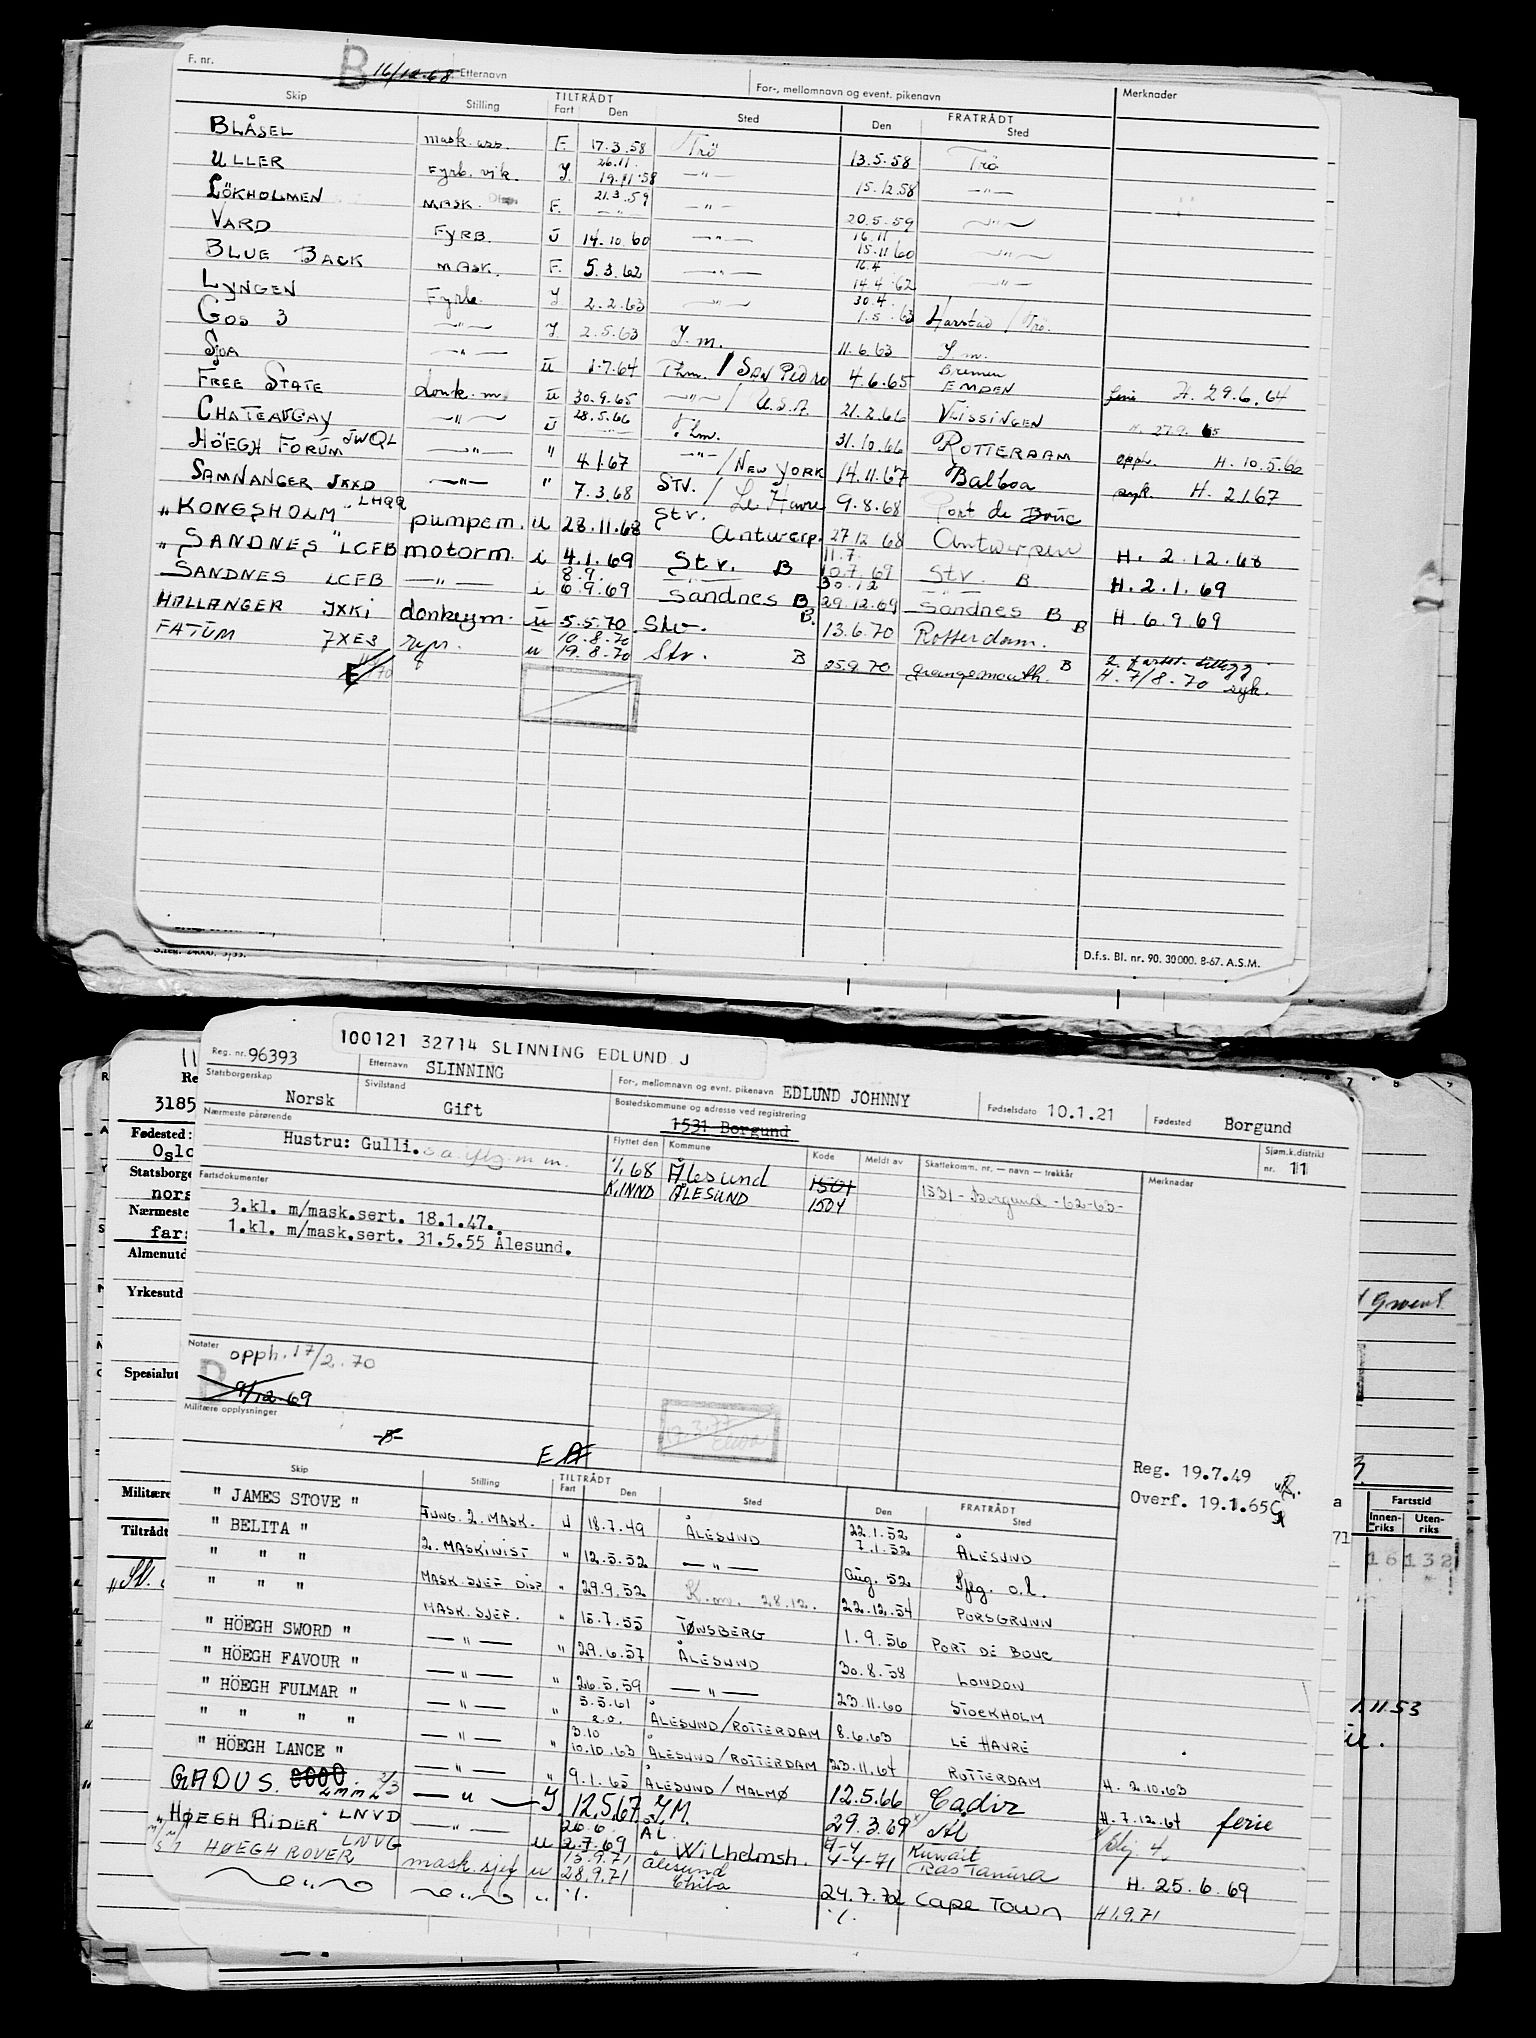 F. nr. B 16/12-68 Etternavn For-, mellomnavn og event. pikenavn Merknader
Skip Stilling TILTRÅDT Fart Den Sted FRATRÅDT Den Sted
BLÅSEL mask. ass. F. 17.3.58 Trö 13.5.58 Trö
ULLER Fyrb. vik. J. 26.11. 19.11.58 —"— 15.12.58 —"—
LÖKHOLMEN MASK. F. 21.3.59 —"— 20.5.59 —"—
VARD FYRB. U 14.10.60 —"— 16.11 15.11.60 —"—
BLUE BACK MASK. F. 5.3.62 —"— 16.4 14.4.62 —"—
LYNGEN Fyrb. J. 2.2.63 —"— 30.4. 1.5.63 Harstad / Trö.
GOS 3 —"— J. 2.5.63 J.m. 11.6.63 J.m.
SJOA —"— U 1.7.64 Thm. / SAN PEDRO 4.6.65 Bremen EMDEN ferie H. 29.6.64
FREE STATE donk. m. U 30.9.65 —"— / U.S.A. 21.2.66 VLISSINGEN H. 27.9.65
CHATEAUGAY —"— U 28.5.66 Thm. 31.10.66 ROTTERDAM opph. H. 10.5.66
HÖEGH FORUM JWQL —"— " 4.1.67 —"— / NEW YORK 14.11.67 Balboa syk. H. 2.1.67
SAMNANGER JXXD —"— " 7.3.68 STV. / Le Havre 9.8.68 Port de Bouc
"KONGSHOLM" LHQQ pumpem. U 28.11.68 Stv. Antwerp. 27.12.68 Antwerpen H. 2.12.68
"SANDNES" LCFB motorm. i 4.1.69 Stv. B 11.7. 10.7.69 Stv. B H. 2.1.69
SANDNES LCFB —"— i 8.9. 6.9.69 Sandnes B 30.12 29.12.69 Sandnes B H. 6.9.69
HALLANGER JXKI donkeym. U 5.5.70 Stv. B. 13.6.70 Rotterdam. B
FATUM JXES repr. U 10.8.70 19.8.70 Stv. B 25.9.70 Grangemouth. B H. 7/8.70 syk.
D.f.s. Bl. nr. 90. 30000. 8-67. A.S.M.
100121 32714 SLINNING EDLUND J
Reg. nr. 96393 Etternavn SLINNING For-, mellomnavn og evnt. pikenavn EDLUND JOHNNY Fødselsdato 10.1.21 Fødested Borgund
Statsborgerskap Norsk Sivilstand Gift Bostedskommune og adresse ved registrering 1531 Borgund
Nærmeste pårørende Hustru: Gulli. s.a. Flyttet den Kommune Kode Meldt av Skattekomm. nr. – navn – trekkår Sjøm.k.distrikt nr. 11
1/1 68 Ålesund 1501 1531 - Borgund - 62-63- Merknader
K.INND ÅLESUND 1504
Fartsdokumenter
3.kl. m/mask.sert. 18.1.47.
1.kl. m/mask.sert. 31.5.55 Ålesund.
Notater opph. 17/2.70
B 9/12.69
Militære opplysninger
Reg. 19.7.49
Overf. 19.1.65
Skip Stilling TILTRÅDT Fart Den Sted FRATRÅDT Den Sted
" JAMES STOVE " FUNG. 2. MASK. U 18.7.49 ÅLESUND 22.1.52 7.1.52 ÅLESUND
" BELITA " 2. MASKINIST " 12.5.52 —"— Aug. 52 Sfrg. o.l.
" " " MASK. SJEF DISP " 29.9.52 K.m. 28.12. 22.12.54 PORSGRUNN
" " " MASK. SJEF. " 15.7.55 TØNSBERG 1.9.56 PORT DE BOUC
" HÖEGH SWORD " —"— " 29.6.57 ÅLESUND 30.8.58 LONDON
" HÖEGH FAVOUR " —"— " 26.5.59 —"— 23.11.60 STOCKHOLM
" HÖEGH FULMAR " —"— " 5.5.61 ÅLESUND/ROTTERDAM 8.6.63 LE HAVRE
" " " " —"— " 3.10 10.10.63 ÅLESUND/ROTTERDAM 23.11.64 ROTTERDAM H. 2.10.63
" HÖEGH LANCE " —"— " 9.1.65 ÅLESUND/MALMØ 12.5.66 Cadiz H. 7.12.64 ferie
GADUS. —"— J 12.5.67 J.M. 29.3.69 Ål
"HØEGH RIDER" LNVD —"— U 26.6. 2.7.69 ÅL. Wilhelmsh. 4-4-71 Kuwait Ras Tanura H. 25.6.69
HØEGH ROVER LNVG mask sjef U 13.9.71 28.9.71 Ålesund Chiba 24.7.72 Cape Town H 1.9.71
—"— —"— " ·/· ·/·
3185
Fødested:
Oslo
Statsborge
nors
Nærmeste
Almenutd
Yrkesutd
Spesialut
Militære
Tiltrådt
Fartstid
Innen-riks Uten-riks
16 132
1.11.53